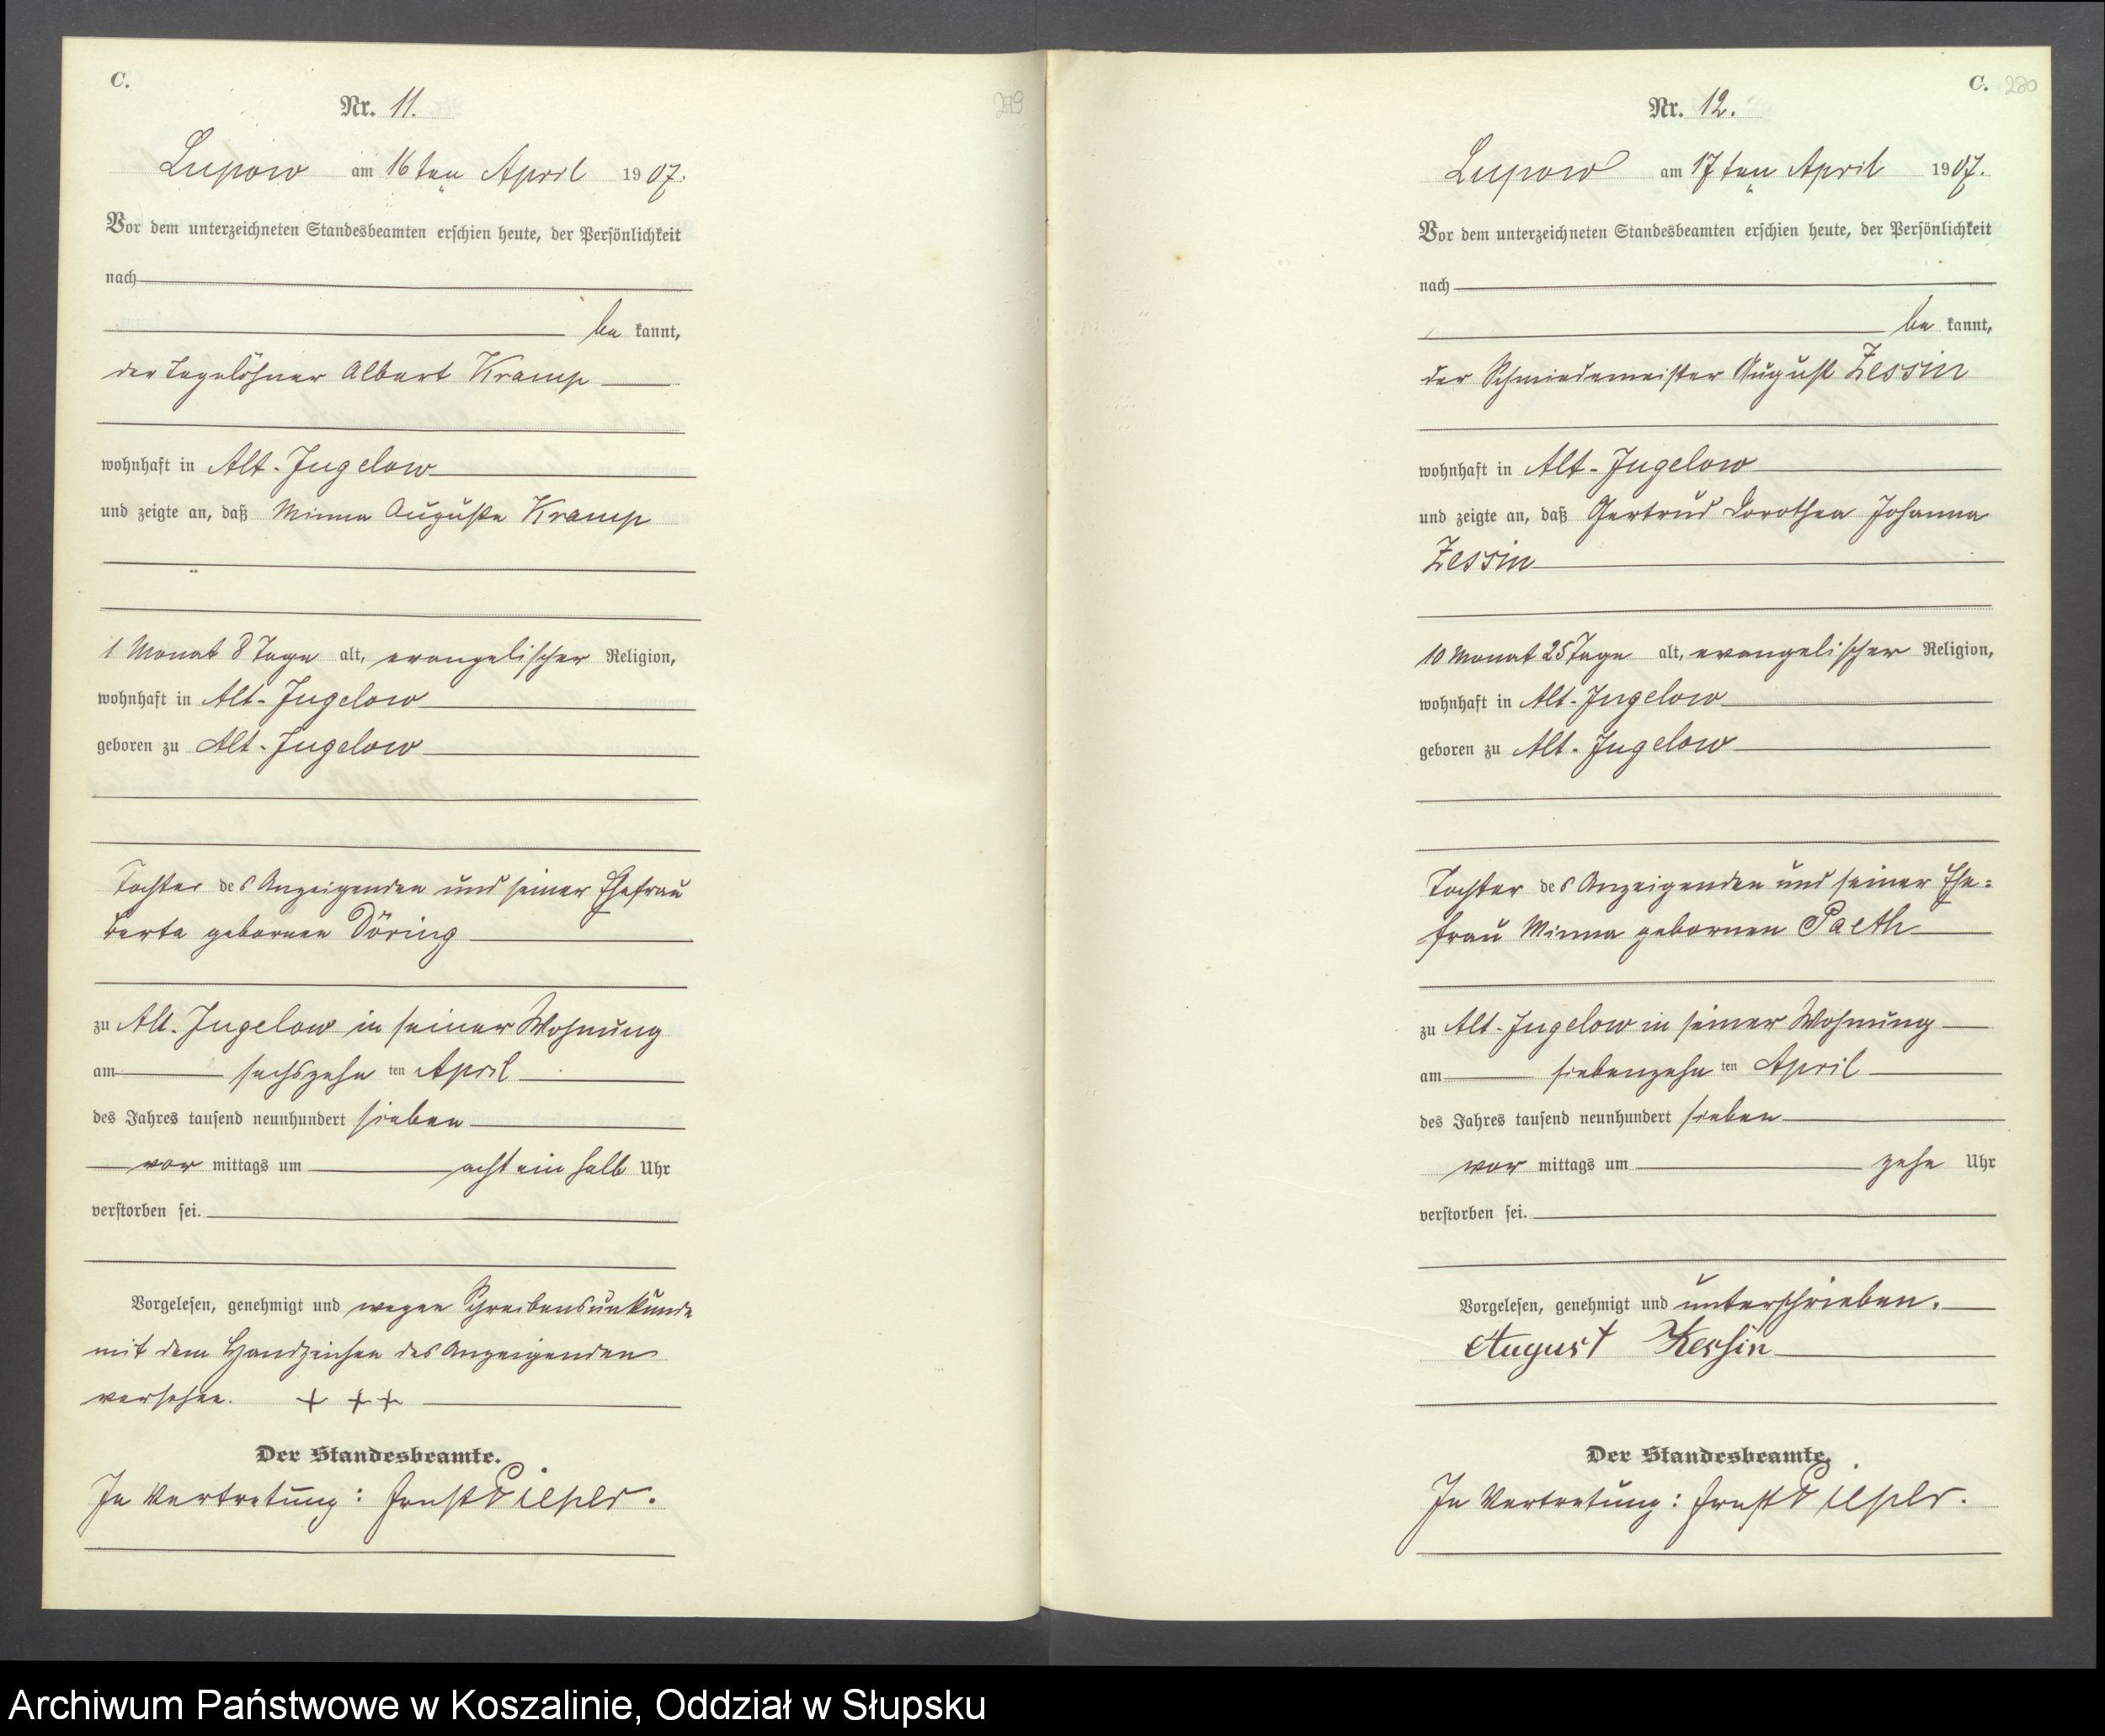 C.
Nr. 11.
279
Lupow am 16ten April 1907.
Vor dem unterzeichneten Standesbeamten erschien heute, der Persönlichkeit
nach
be kannt,
der Tagelöhner Albert Kramp
wohnhaft in Alt-Jugelow
und zeigte an, daß Minna Auguste Kramp
1 Monat 8 Tage alt, evangelischer Religion,
wohnhaft in Alt-Jugelow
geboren zu Alt-Jugelow
Tochter des Anzeigenden und seiner Ehefrau
Berta gebornen Döring
zu Alt-Jugelow in seiner Wohnung
am sechszehn ten April
des Jahres tausend neunhundert sieben
vor mittags um acht ein halb Uhr
verstorben sei.
Vorgelesen, genehmigt und wegen Schreibensunkunde
mit dem Handzeichen des Anzeigenden
versehen. + + +
Der Standesbeamte.
In Vertretung: Ernst Pieper.
C. 280
Nr. 12.
Lupow am 17ten April 1907.
Vor dem unterzeichneten Standesbeamten erschien heute, der Persönlichkeit
nach
be kannt,
der Schmiedemeister August Zessin
wohnhaft in Alt-Jugelow
und zeigte an, daß Gertrud Dorothea Johanna
Zessin
10 Monat 25 Tage alt, evangelischer Religion,
wohnhaft in Alt-Jugelow
geboren zu Alt-Jugelow
Tochter des Anzeigenden und seiner Ehe=
frau Minna gebornen Paeth
zu Alt-Jugelow in seiner Wohnung
am siebenzehn ten April
des Jahres tausend neunhundert sieben
vor mittags um zehn Uhr
verstorben sei.
Vorgelesen, genehmigt und unterschrieben.
August Zessin
Der Standesbeamte.
In Vertretung: Ernst Pieper.
Archiwum Państwowe w Koszalinie, Oddział w Słupsku